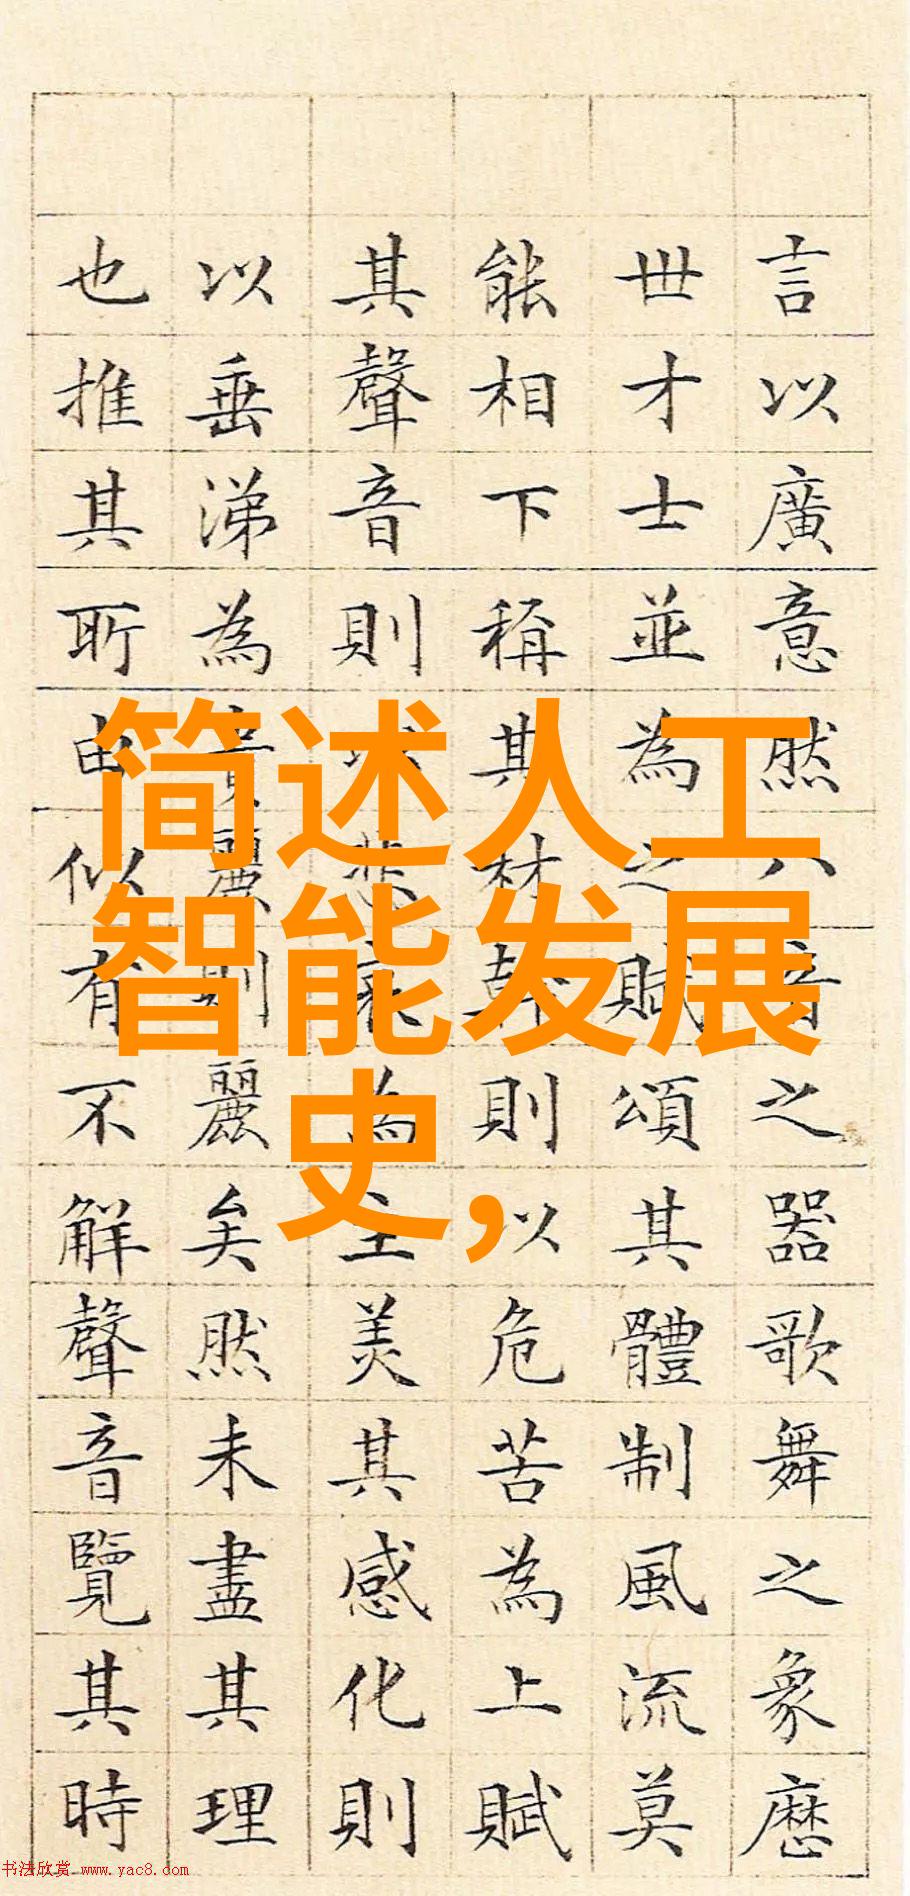 简述人工
智能发展
史,
言以廣意然八音之器歌舞之象歷
世才士並為之賦頌其體制風流莫
能相下稱其材幹則以危苦為上賦
其聲音則以悲哀為主美其感化則
以垂涕為貴麗則麗矣然未盡其理
也推其所由似有不解聲音覽其時
书法欣赏 www.yac8.com